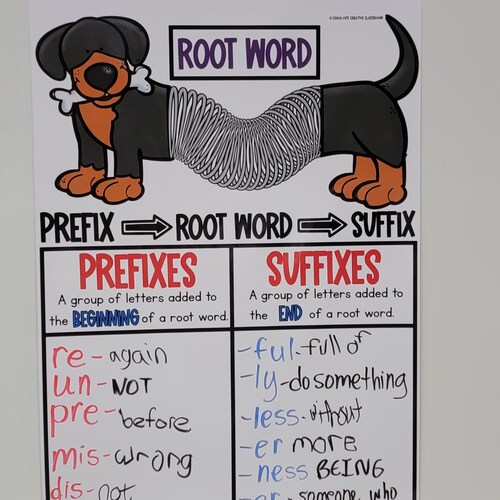 ROOT WORD
PREFIX ROOT WORD SUFFIX
PREFIXES
A group of letters added to
the BEGINNING of a root word.
re - again
un - NOT
pre - before
mis - wrong
dis - not
SUFFIXES
A group of letters added to
the END of a root word.
-ful - full of
-ly - do something
-less - without
-er more
-ness BEING
-er - someone who